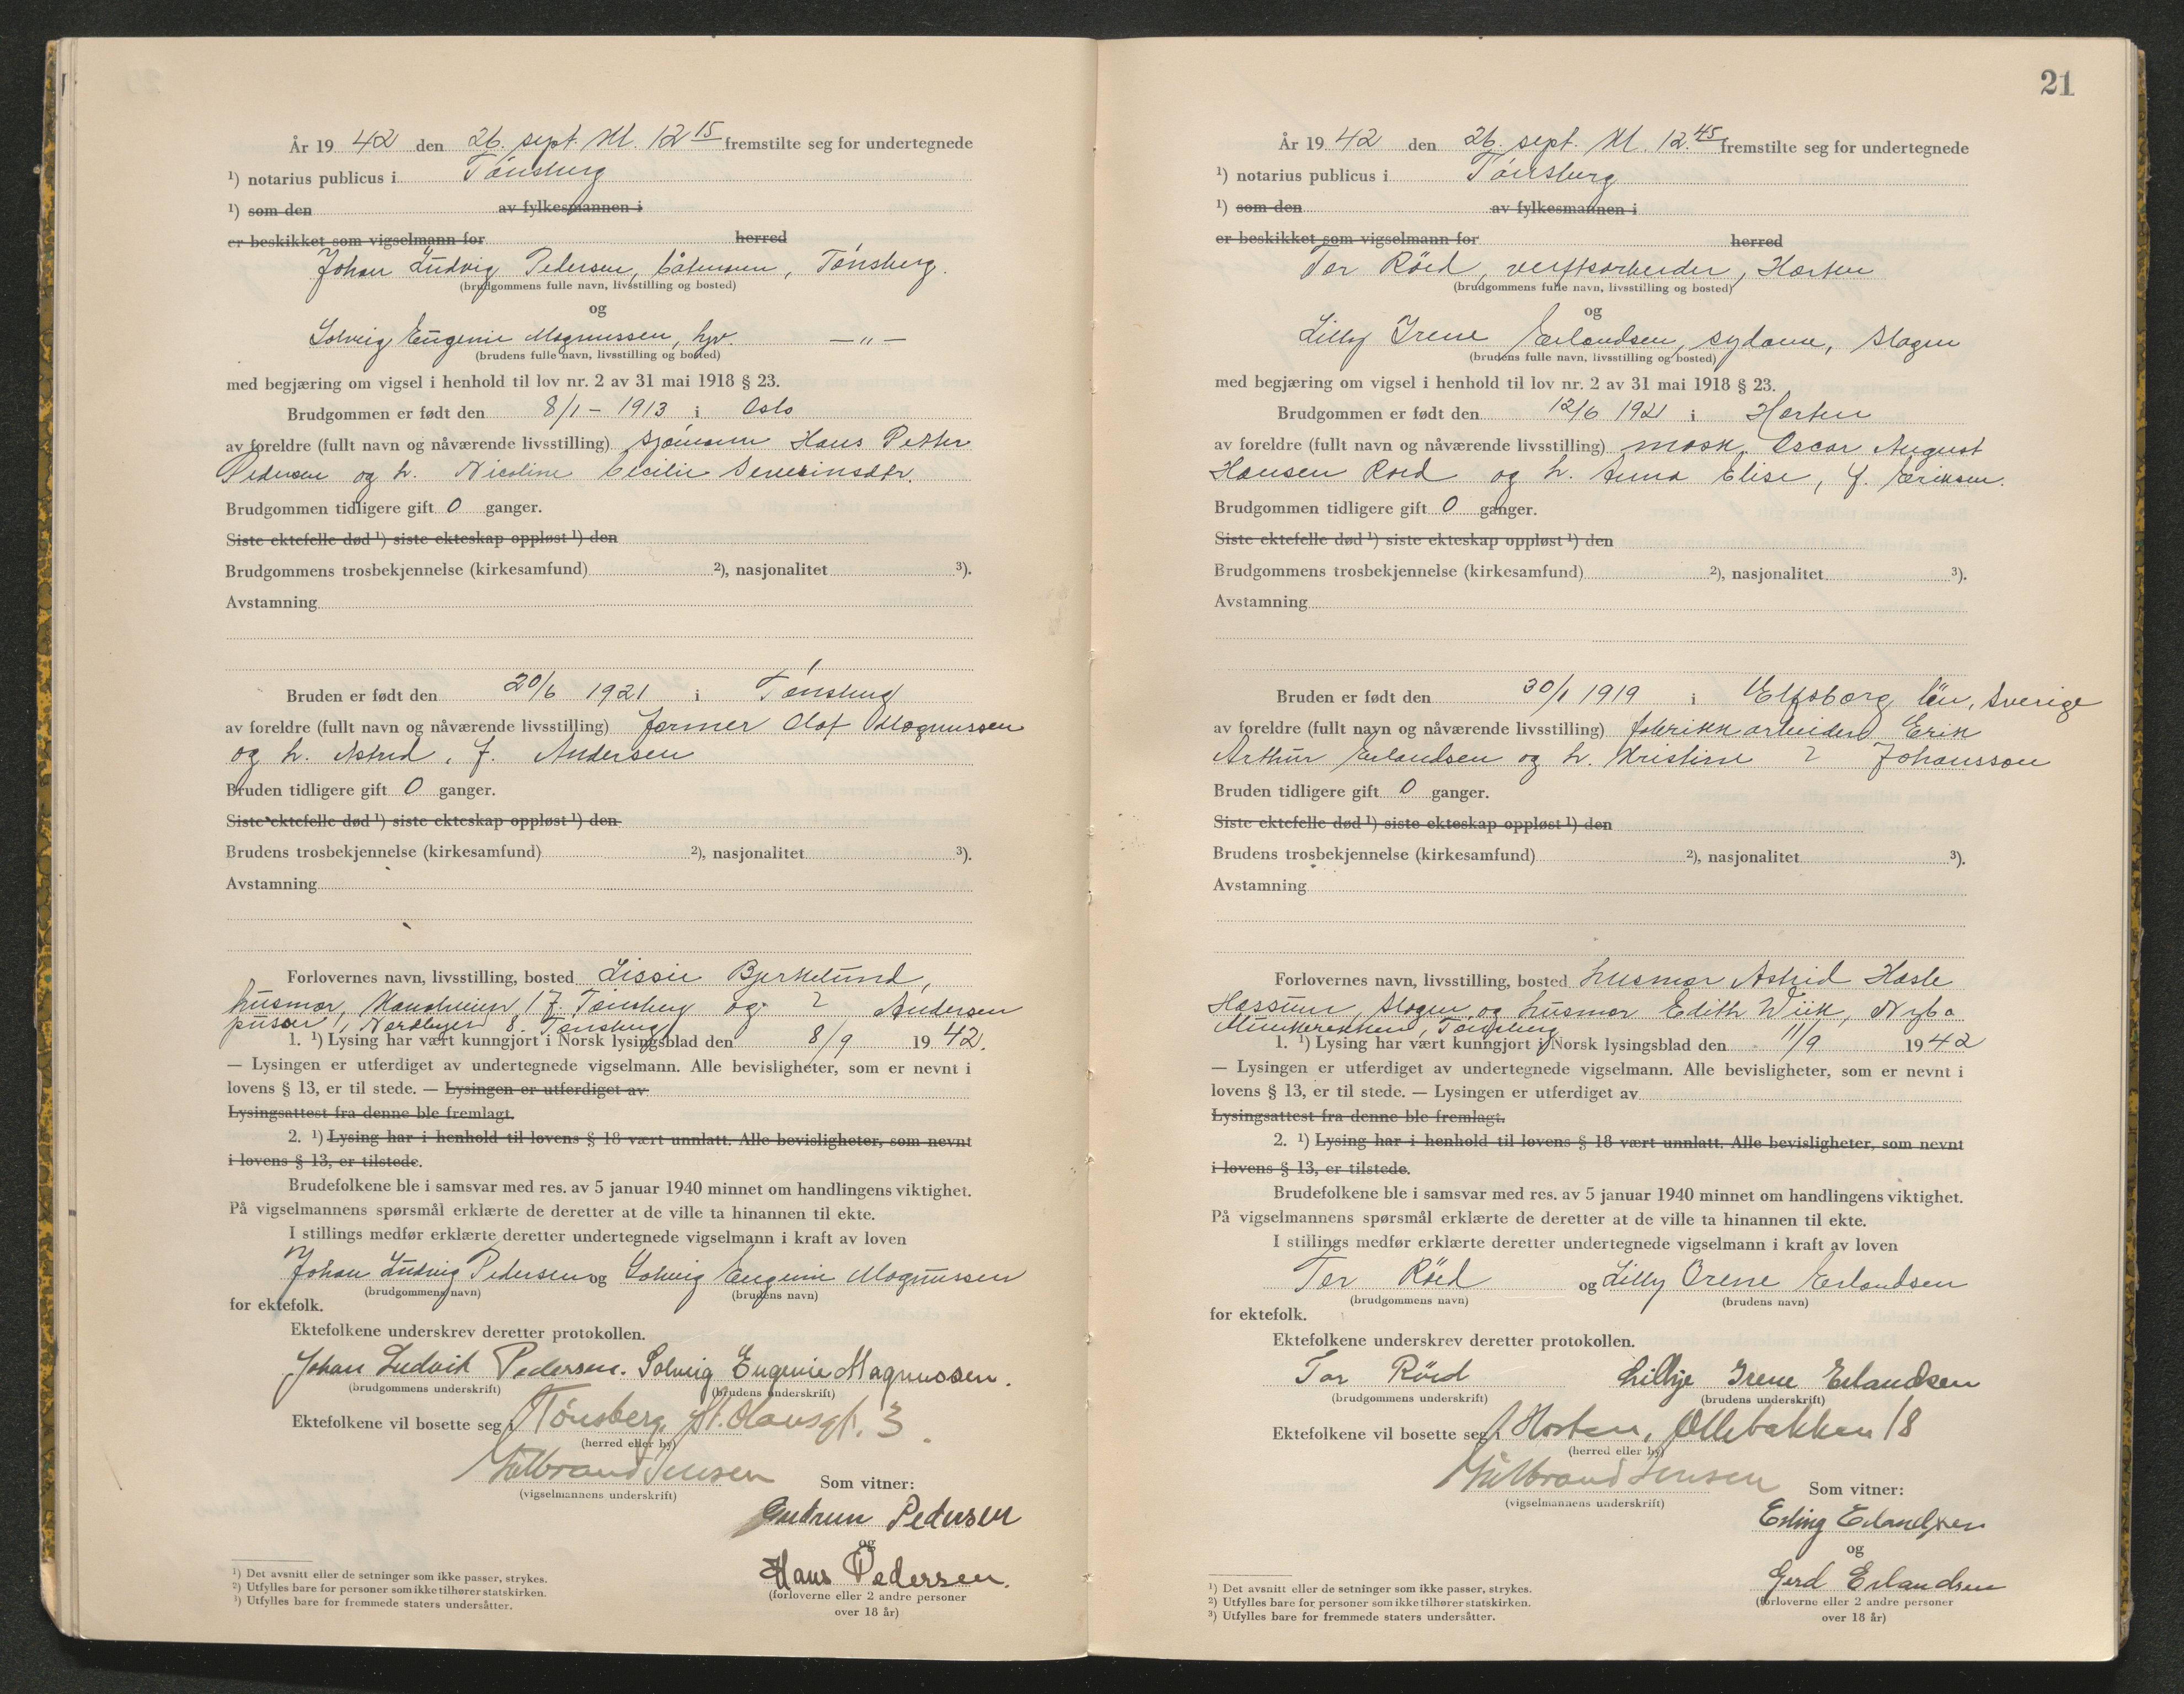 År 19 42 den 26. sept. kl. 12 15 fremstilte seg for undertegnede
¹) notarius publicus i Tönsberg
¹) som den av fylkesmannen i
er beskikket som vigselmann for herred
Johan Ludvig Pedersen, båtsmann, Tönsberg.
(brudgommens fulle navn, livsstilling og bosted)
og
Solveig Eugenie Magnussen, hjv. — " —
(brudens fulle navn, livsstilling og bosted)
med begjæring om vigsel i henhold til lov nr. 2 av 31 mai 1918 § 23.
Brudgommen er født den 8/1 - 1913 i Oslo
av foreldre (fullt navn og nåværende livsstilling) sjömann Hans Petter
Pedersen og h. Nicoline Cecilie Severinsdtr.
Brudgommen tidligere gift 0 ganger.
Siste ektefelle død ¹) siste ekteskap oppløst ¹) den
Brudgommens trosbekjennelse (kirkesamfund) ²), nasjonalitet ³).
Avstamning
Bruden er født den 20/6 1921 i Tönsberg
av foreldre (fullt navn og nåværende livsstilling) former Olof Magnussen
og h. Astrid, f. Andersen
Bruden tidligere gift 0 ganger.
Siste ektefelle død ¹) siste ekteskap oppløst ¹) den
Brudens trosbekjennelse (kirkesamfund) ²), nasjonalitet ³).
Avstamning
Forlovernes navn, livsstilling, bosted Lissie Bjerkelund,
husmor, 17. Tönsberg og ? Andersen
pusser, Nordbyen 8. Tönsberg
1. ¹) Lysing har vært kunngjort i Norsk lysingsblad den 8/9 19 42.
— Lysingen er utferdiget av undertegnede vigselmann. Alle bevisligheter, som er nevnt i
lovens § 13, er til stede. — Lysingen er utferdiget av
Lysingsattest fra denne ble fremlagt.
2. ¹) Lysing har i henhold til lovens § 18 vært unnlatt. Alle bevisligheter, som nevnt
i lovens § 13, er tilstede.
Brudefolkene ble i samsvar med res. av 5 januar 1940 minnet om handlingens viktighet.
På vigselmannens spørsmål erklærte de deretter at de ville ta hinannen til ekte.
I stillings medfør erklærte deretter undertegnede vigselmann i kraft av loven
Johan Ludvig Pedersen og Solveig Eugenie Magnussen
(brudgommens navn) (brudens navn)
for ektefolk.
Ektefolkene underskrev deretter protokollen.
Johan Ludvik Pedersen. Solveig Eugenie Magnussen.
(brudgommens underskrift) (brudens underskrift)
Ektefolkene vil bosette seg i Tönsberg, St. Olavsgt. 3.
(herred eller by)
Gulbrand Jensen Som vitner:
(vigselmannens underskrift)
Gudrun Pedersen
og
Hans Pedersen.
(forloverne eller 2 andre personer
over 18 år)
¹) Det avsnitt eller de setninger som ikke passer, strykes.
²) Utfylles bare for personer som ikke tilhører statskirken.
³) Utfylles bare for fremmede staters undersåtter.
21
År 19 42 den 26. sept. kl. 12.45 fremstilte seg for undertegnede
¹) notarius publicus i Tönsberg
¹) som den av fylkesmannen i
er beskikket som vigselmann for herred
Tor Röed, verftsarbeider, Horten
(brudgommens fulle navn, livsstilling og bosted)
og
Lilly Irene Erlandsen, sydame, Slagen
(brudens fulle navn, livsstilling og bosted)
med begjæring om vigsel i henhold til lov nr. 2 av 31 mai 1918 § 23.
Brudgommen er født den 12/6 1921 i Horten
av foreldre (fullt navn og nåværende livsstilling) mask. Oscar August
Hansen Röed og h. Anna Elise, f. Eriksen.
Brudgommen tidligere gift 0 ganger.
Siste ektefelle død ¹) siste ekteskap oppløst ¹) den
Brudgommens trosbekjennelse (kirkesamfund) ²), nasjonalitet ³).
Avstamning
Bruden er født den 30/1 1919 i Elfsborg län, Sverige
av foreldre (fullt navn og nåværende livsstilling) fabrikkarbeider Erik
Arthur Erlandsen og h. Kristine ? Johansson
Bruden tidligere gift 0 ganger.
Siste ektefelle død ¹) siste ekteskap oppløst ¹) den
Brudens trosbekjennelse (kirkesamfund) ²), nasjonalitet ³).
Avstamning
Forlovernes navn, livsstilling, bosted husmor Astrid Hasle
Hassum, Slagen og husmor Edith Wiik, Nybo
Munkerekken, Tönsberg
1. ¹) Lysing har vært kunngjort i Norsk lysingsblad den 11/9 19 42
— Lysingen er utferdiget av undertegnede vigselmann. Alle bevisligheter, som er nevnt i
lovens § 13, er til stede. — Lysingen er utferdiget av
Lysingsattest fra denne ble fremlagt.
2. ¹) Lysing har i henhold til lovens § 18 vært unnlatt. Alle bevisligheter, som nevnt
i lovens § 13, er tilstede.
Brudefolkene ble i samsvar med res. av 5 januar 1940 minnet om handlingens viktighet.
På vigselmannens spørsmål erklærte de deretter at de ville ta hinannen til ekte.
I stillings medfør erklærte deretter undertegnede vigselmann i kraft av loven
Tor Röed og Lilly Irene Erlandsen
(brudgommens navn) (brudens navn)
for ektefolk.
Ektefolkene underskrev deretter protokollen.
Tor Röed Lillije Irene Erlandsen
(brudgommens underskrift) (brudens underskrift)
Ektefolkene vil bosette seg i Horten, Øllebakken 18
(herred eller by)
Gulbrand Jensen Som vitner:
(vigselmannens underskrift)
Erling Erlandsen
og
Gerd Erlandsen
(forloverne eller 2 andre personer
over 18 år)
¹) Det avsnitt eller de setninger som ikke passer, strykes.
²) Utfylles bare for personer som ikke tilhører statskirken.
³) Utfylles bare for fremmede staters undersåtter.